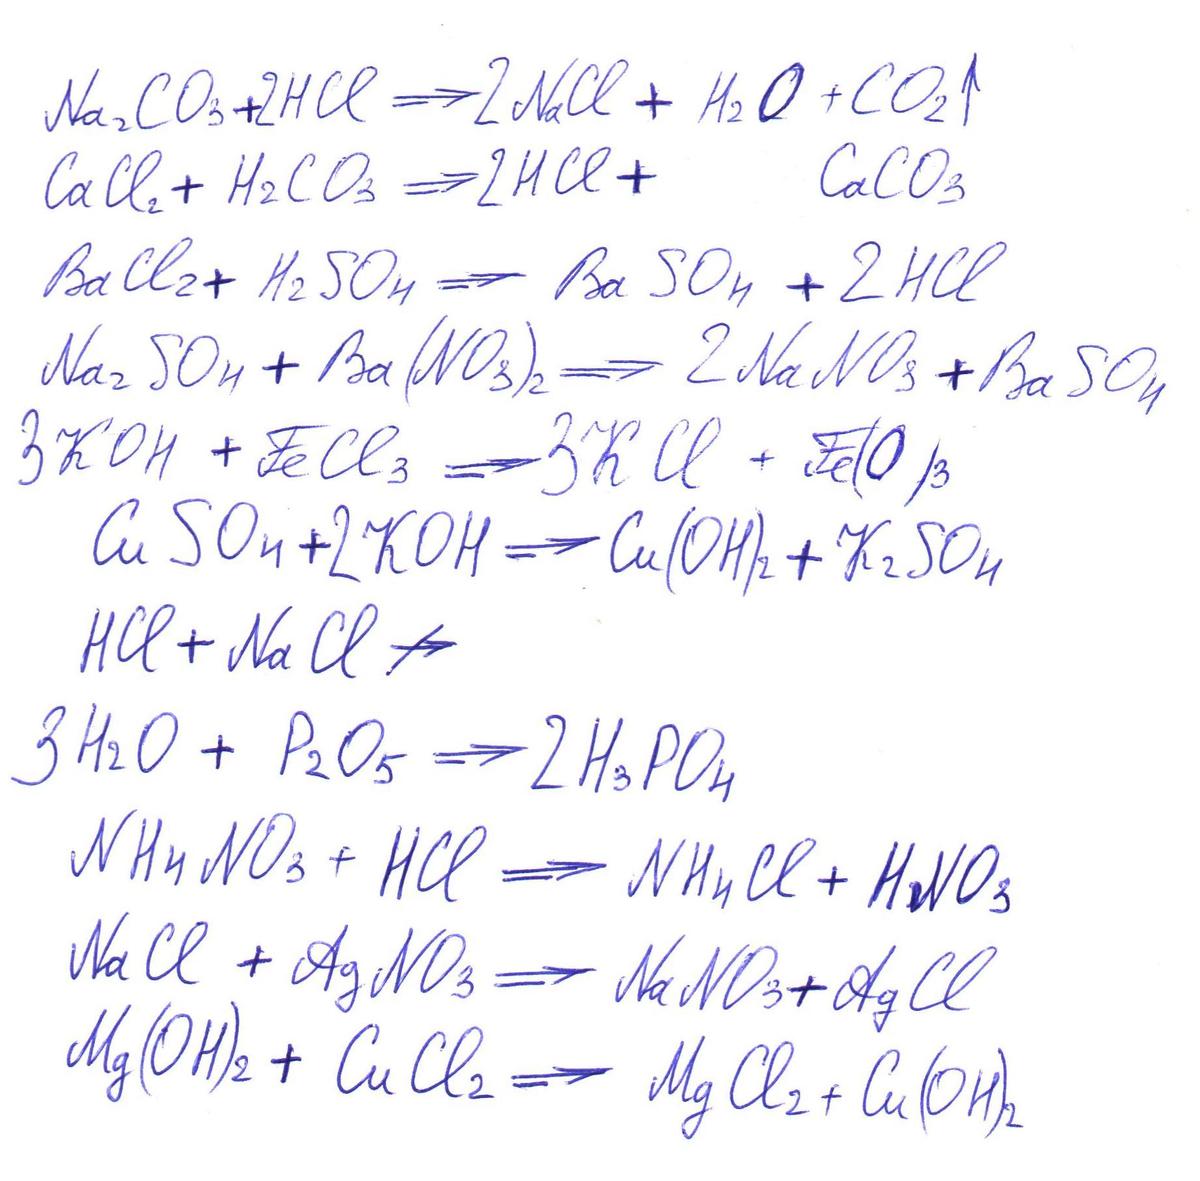 Na₂CO₃ + 2HCl ⇒ 2NaCl + H₂O + CO₂↑
CaCl₂ + H₂CO₃ ⇒ 2HCl + CaCO₃
BaCl₂ + H₂SO₄ ⇒ BaSO₄ + 2HCl
Na₂SO₄ + Ba(NO₃)₂ ⇒ 2NaNO₃ + BaSO₄
3KOH + FeCl₃ ⇒ 3KCl + Fe(O )₃
CuSO₄ + 2KOH ⇒ Cu(OH)₂ + K₂SO₄
HCl + NaCl ↛
3H₂O + P₂O₅ ⇒ 2H₃PO₄
NH₄NO₃ + HCl ⇒ NH₄Cl + HNO₃
NaCl + AgNO₃ ⇒ NaNO₃ + AgCl
Mg(OH)₂ + CuCl₂ ⇒ MgCl₂ + Cu(OH)₂